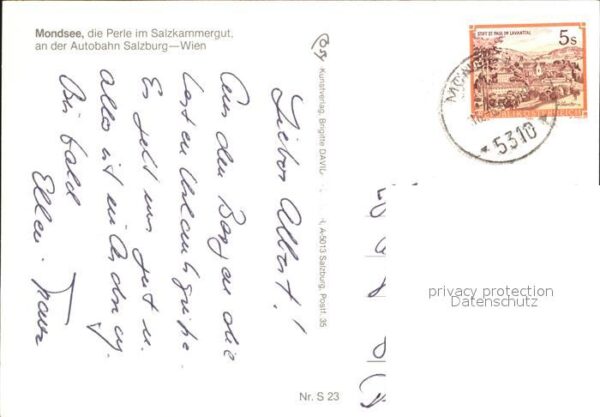 Mondsee, die Perle im Salzkammergut,
an der Autobahn Salzburg—Wien
Lieber Albert!
Aus den Bergen die
besten Urlaubsgrüße.
Es geht uns gut u.
alles ist in Ordnung.
Bis bald
Ellen
Kunstverlag, Brigitte DAVID
A-5013 Salzburg, Postf. 35
Nr. S 23
STIFT ST. PAUL IM LAVANTTAL
5 S
REPUBLIK ÖSTERREICH
5310
privacy protection
Datenschutz